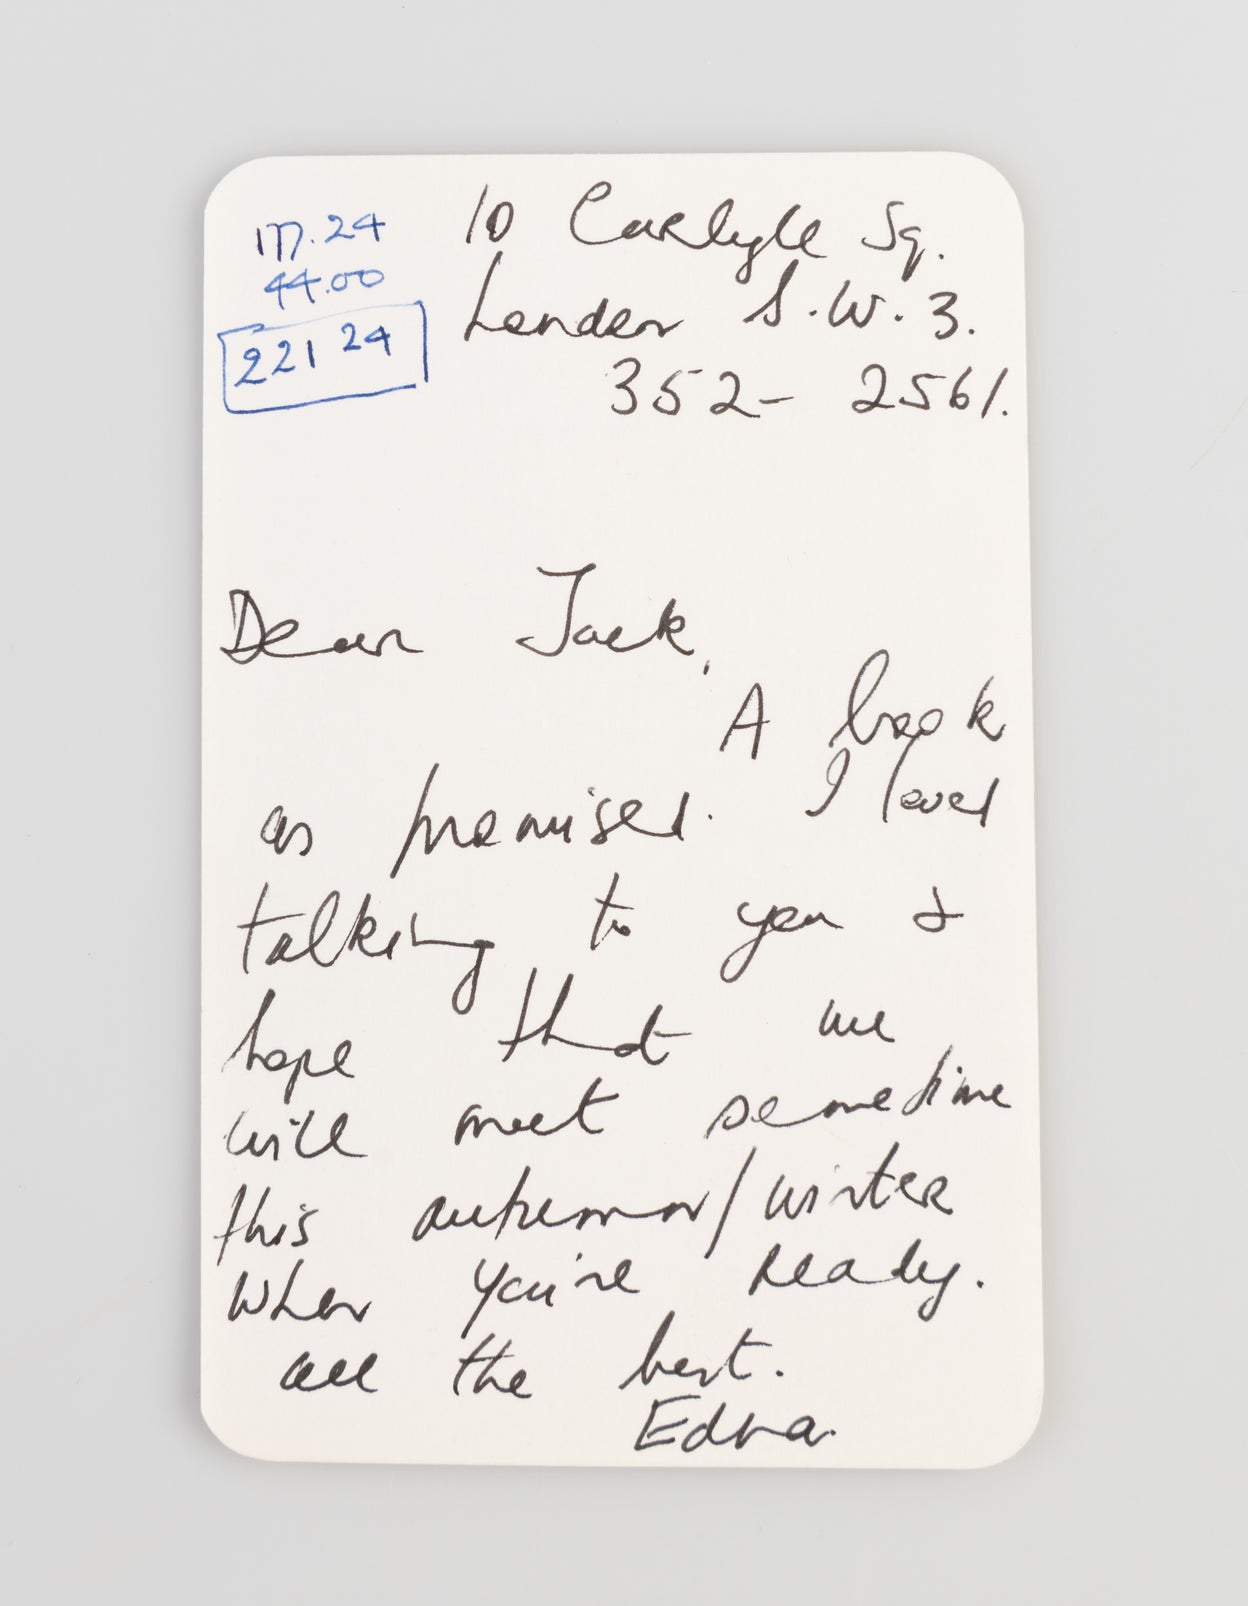 177.24
44.00
221 24
10 Carlyle Sq.
London S.W.3.
352-2561.
Dear Jack,
A book
as promised. I loved
talking to you &
hope that we
will meet sometime
this autumn/winter
when you're ready.
all the best.
Edna.